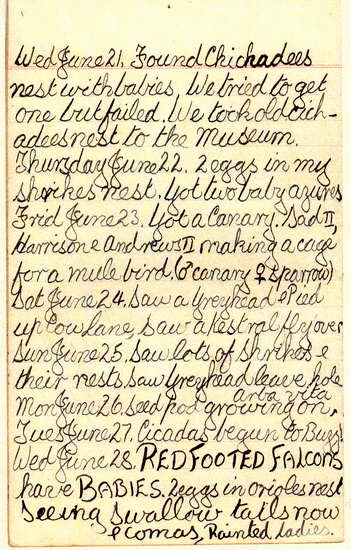 Wed June 21. Found Chickadees
nest with babies. We tried to get
one but failed. We took old cich-
adees nest to the Museum.
Thursday June 22. 2 eggs in my
shrikes nest. Got two baby azures
Frid June 23. Got a Canary. Dad II,
Harrison e Andrews II making a cage
for a mule bird. (♂ canary ♀ sparrow)
Sat June 24. Saw a Greyhead e Pied
up Cow lane, Saw a Kestral fly over
Sun June 25. Saw lots of Shrikes e
their nests. Saw Greyhead leave hole
Mon June 26. Seed pod growing on,
arba vita
Tues June 27. Cicadas begun to Buzz
Wed June 28. RED FOOTED FALCONS
have BABIES. 2 eggs in orioles nest
Seeing Swallow tails now
e comas, Painted Ladies.